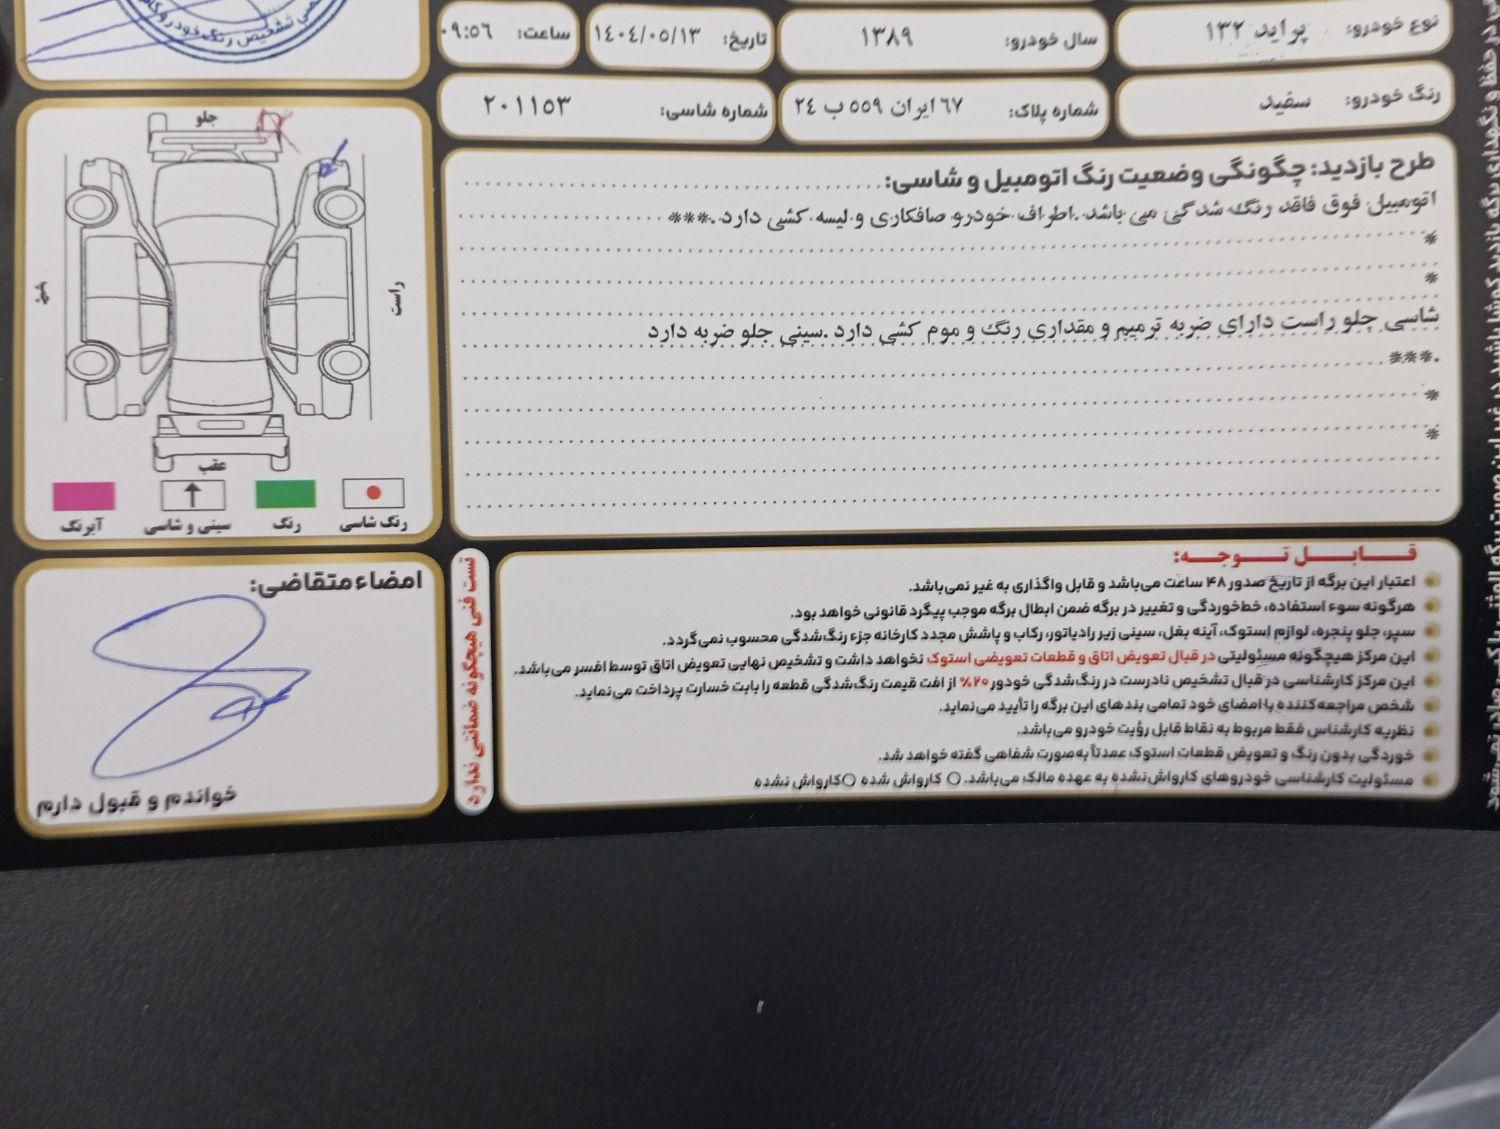 نوع خودرو: پراید ۱۳۲
سال خودرو: ۱۳۸۹
تاریخ: ۱۴۰۴/۰۵/۱۳
ساعت: ۰۹:۵۶
رنگ خودرو: سفید
شماره پلاک: ۶۷ ایران ۵۵۹ ب ۲۴
شماره شاسی: ۲۰۱۱۵۳
طرح بازدید: چگونگی وضعیت رنگ اتومبیل و شاسی:
اتومبیل فوق فاقد رنگ شدگی می باشد .اطراف خودرو صافکاری و لیسه کشی دارد .***
*
*
شاسی جلو راست دارای ضربه ترمیم و مقداری رنگ و موم کشی دارد .سینی جلو ضربه دارد
.***
*
*
جلو
راست
چپ
عقب
رنگ شاسی
رنگ
سینی و شاسی
آبرنگ
قابل توجه:
اعتبار این برگه از تاریخ صدور ۴۸ ساعت می‌باشد و قابل واگذاری به غیر نمی‌باشد.
هرگونه سوء استفاده، خط‌خوردگی و تغییر در برگه ضمن ابطال برگه موجب پیگرد قانونی خواهد بود.
سپر، جلو پنجره، لوازم استوک، آینه بغل، سینی زیر رادیاتور، رکاب و پاشش مجدد کارخانه جزء رنگ‌شدگی محسوب نمی‌گردد.
این مرکز هیچگونه مسئولیتی در قبال تعویض اتاق و قطعات تعویضی استوک نخواهد داشت و تشخیص نهایی تعویض اتاق توسط افسر می‌باشد.
این مرکز کارشناسی در قبال تشخیص نادرست در رنگ‌شدگی خودور ۲۰% از افت قیمت رنگ‌شدگی قطعه را بابت خسارت پرداخت می‌نماید.
شخص مراجعه‌کننده با امضای خود تمامی بندهای این برگه را تأیید می‌نماید.
نظریه کارشناس فقط مربوط به نقاط قابل رؤیت خودرو می‌باشد.
خوردگی بدون رنگ و تعویض قطعات استوک عمدتاً به‌صورت شفاهی گفته خواهد شد.
مسئولیت کارشناسی خودروهای کارواش‌نشده به عهده مالک می‌باشد. ○ کارواش شده ○ کارواش نشده
تست فنی هیچگونه ضمانتی ندارد
امضاء متقاضی:
خواندم و قبول دارم